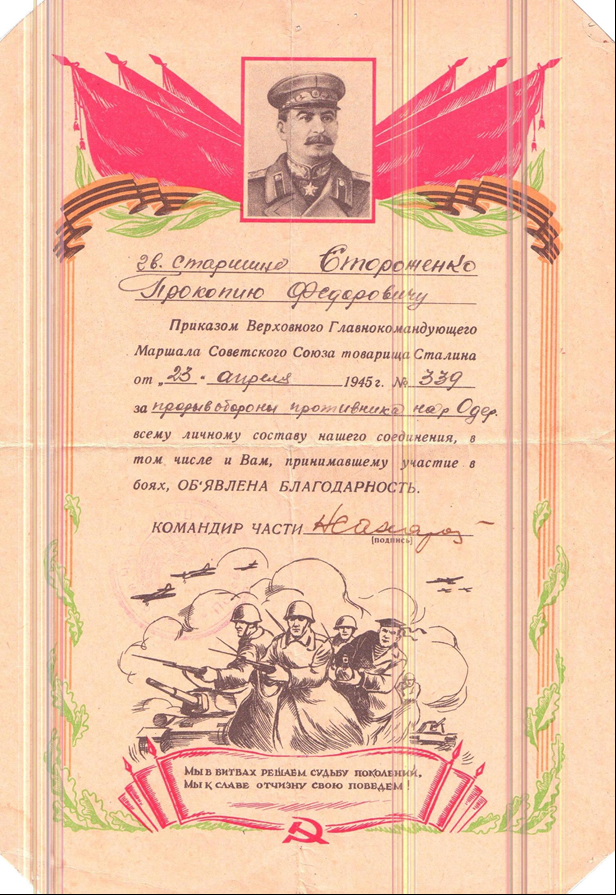 гв. старшине Стороженко
Прокопию Федоровичу
Приказом Верховного Главнокомандующего
Маршала Советского Союза товарища Сталина
от „23" апреля 1945 г. № 339
за прорыв обороны противника на р Одер.
всему личному составу нашего соединения, в
том числе и Вам, принимавшему участие в
боях, ОБ'ЯВЛЕНА БЛАГОДАРНОСТЬ.
КОМАНДИР ЧАСТИ
(подпись)
МЫ В БИТВАХ РЕШАЕМ СУДЬБУ ПОКОЛЕНИЙ,
МЫ К СЛАВЕ ОТЧИЗНУ СВОЮ ПОВЕДЕМ!